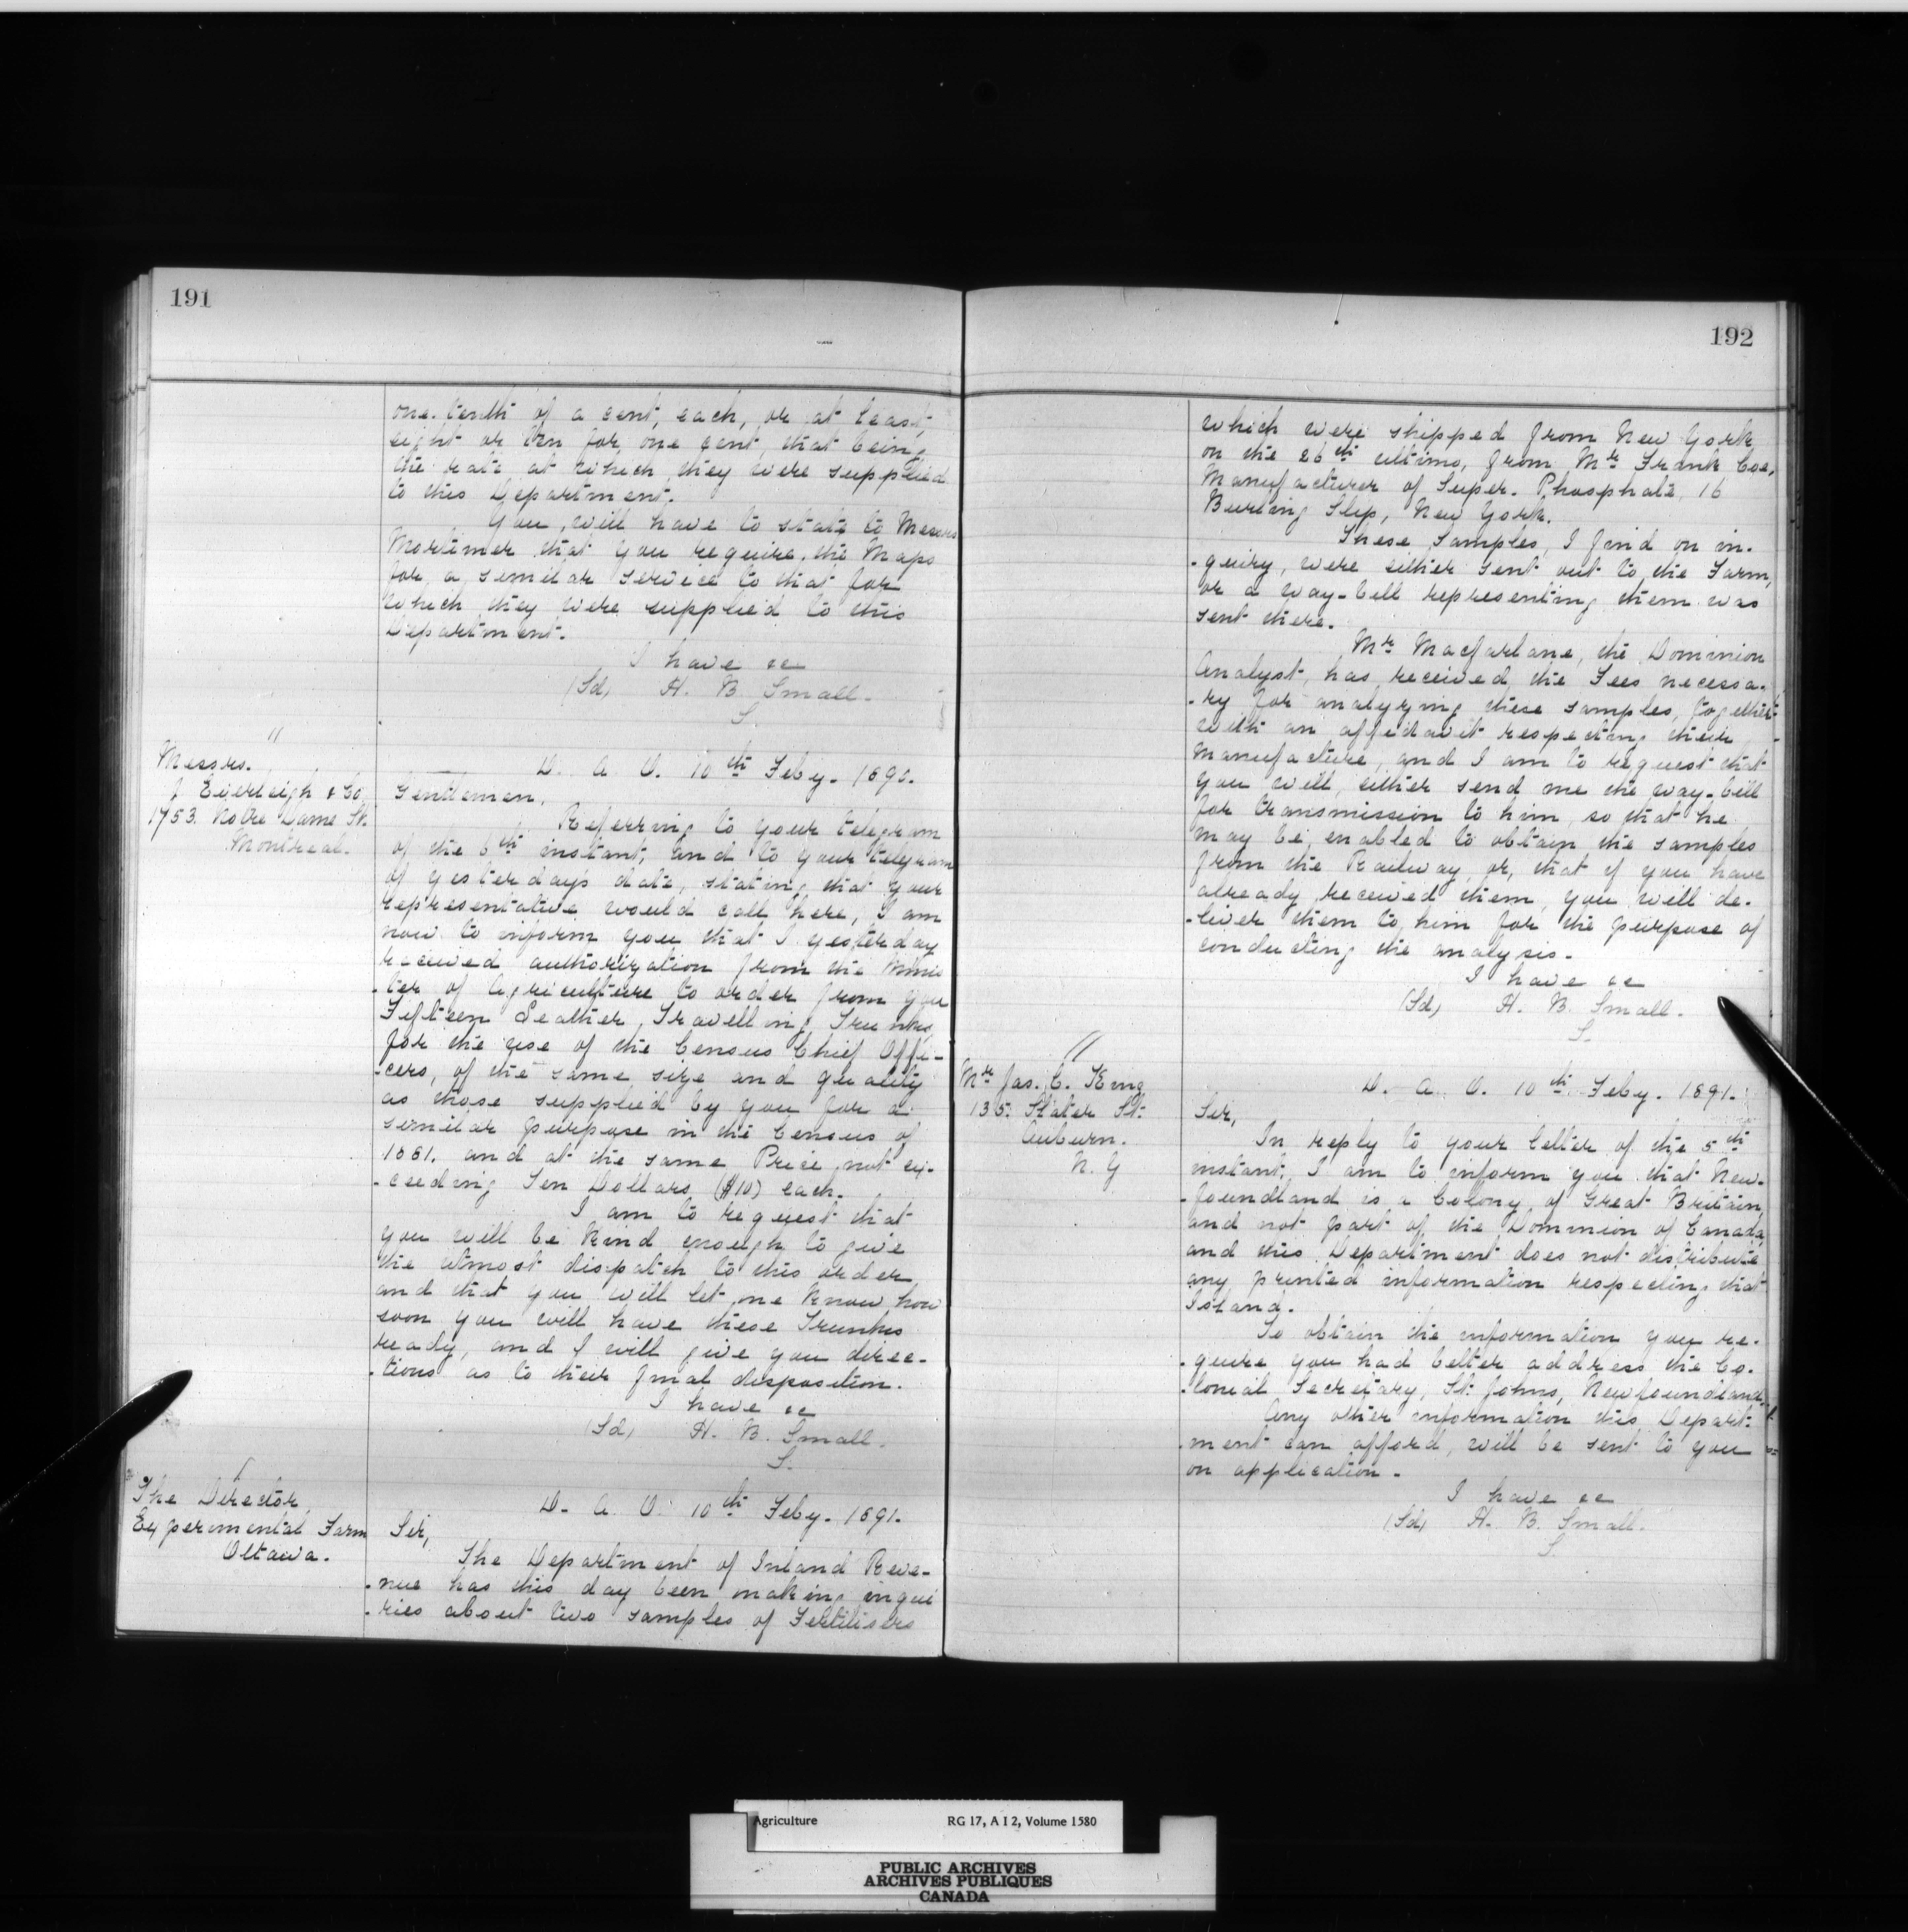 191
one tenth of a cent, each, or at least,
eight or ten for, one cent, that being
the rate at which they were supplied
to this Department.
You, will have to state to Messrs
Mortimer that you require, the Maps
for, a, similar service to that for
which they were supplied to this
Department.
I have &c
(Sd) H. B. Small.
S.
"
Messrs.
J Eveleigh & Co
1753. Notre Dame St.
Montreal.
D. A. O. 10th Feby. 1890.
Gentlemen,
Referring to your telegram
of the 6th instant, and to your telegram
of yesterday's date, stating, that your
representative would call here, I am
now to inform you that I yesterday
received authorization from the Minis
-ter of Agriculture to order from you
Fifteen Leather, Travelling, Trunks,
for the use of the Census Chief Offi-
-cers, of the same size and quality
as those supplied by you for a
similar purpose in the Census of
1881. and at the same Price, not ex-
-ceeding Ten Dollars ($10) each.
I am to request that
you will be kind enough to give
the utmost dispatch to this order,
and that you will let me know how
soon you will have these Trunks
ready, and I will give you direc-
-tions as to their final disposition.
I have &c
(Sd) H. B. Small.
S.
The Director,
Experimental Farm
Ottawa.
D. A. O. 10th Feby. 1891.
Sir,
The Department of Inland Reve-
-nue has this day been making inqui
-ries about two samples of Fertilisers
192
which were shipped from New York
on the 26th ultimo, from Mr Frank Coe,
Manufacturer of Super. Phosphate, 16
Burling Slip, New York.
These Samples, I find on in-
-quiry, were either sent out to, the Farm,
or a way-bill representing them was
sent there.
Mr Macfarlane, the Dominion
Analyst, has received the Fees necessa-
-ry for analyzing these samples, together
with an affidavit respecting their
manufacture, and I am to request that
you will, either send me the way-bill
for transmission to him, so that he
may be, enabled to obtain the samples
from the Railway, or, that if you have
already received them, you will de-
-liver them to him for the purpose of
conducting the analysis.
I have &c
(Sd) H. B. Small.
S.
"
Mr Jas. C. King
135. State St.
Auburn.
N. Y
D. A. O. 10th Feby. 1891.
Sir,
In reply to your letter of the 5th
instant, I am to inform you that New-
-foundland is a Colony of Great Britain,
and not part of the Dominion of Canada,
and this Department does not distribute
any printed information respecting that
Island.
To obtain the information you re-
-quire you had better address the Co-
-lonial Secretary, St. Johns, Newfoundland.
Any other information this Depart-
-ment can afford, will be sent to you
on application.
I have &c
(Sd) H. B. Small.
S.
Agriculture RG 17, A I 2, Volume 1580
PUBLIC ARCHIVES
ARCHIVES PUBLIQUES
CANADA